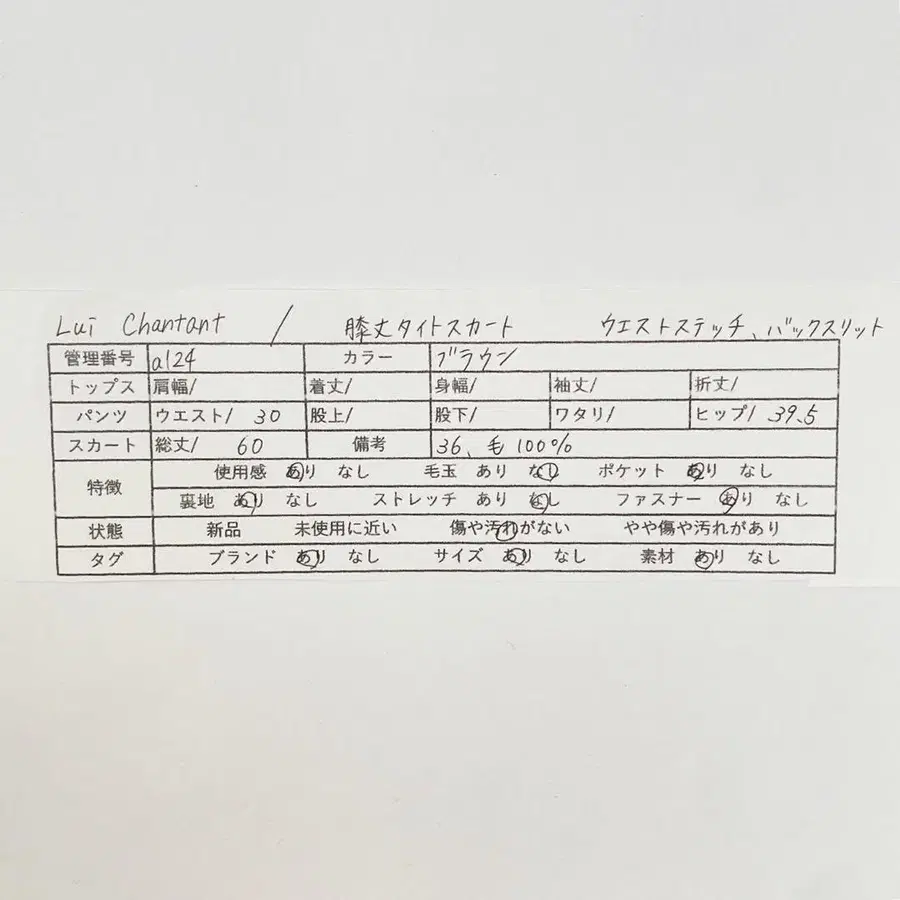 Lui Chantant / 膝丈タイトスカート ウエストステッチ、バックスリット
管理番号 a124 カラー ブラウン
トップス 肩幅/ 着丈/ 身幅/ 袖丈/ 折丈/
パンツ ウエスト/ 30 股上/ 股下/ ワタリ/ ヒップ/ 39.5
スカート 総丈/ 60 備考 36、毛100%
特徴 使用感 あり なし 毛玉 あり なし ポケット あり なし
裏地 あり なし ストレッチ あり なし ファスナー あり なし
状態 新品 未使用に近い 傷や汚れがない やや傷や汚れがあり
タグ ブランド あり なし サイズ あり なし 素材 あり なし